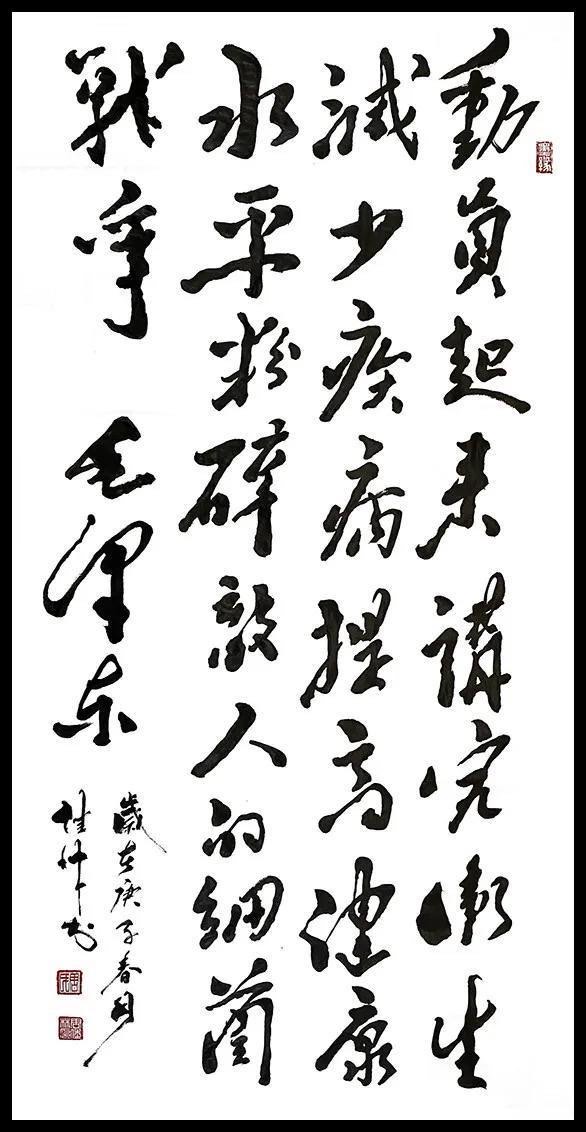 動員起来講究衛生
減少疾病提高健康
水平粉碎敵人的細菌
戰爭 毛泽东
歲在庚子春月